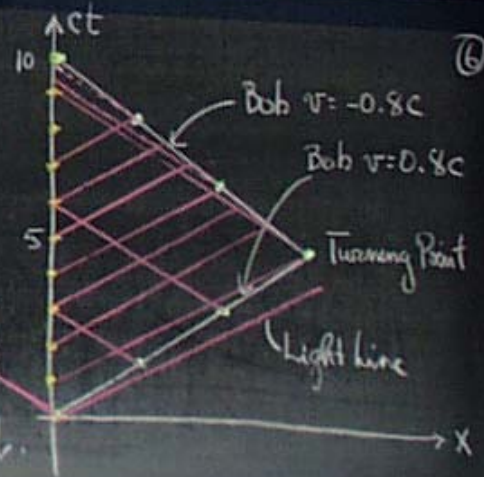 ct
⑥
10
Bob v=-0.8c
Bob v=0.8c
5
Turning Point
Light Line
x